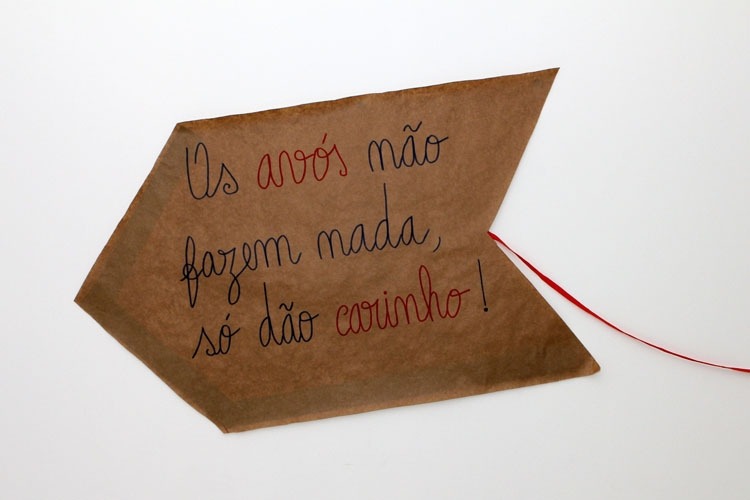 Os avós não
fazem nada,
só dão carinho!